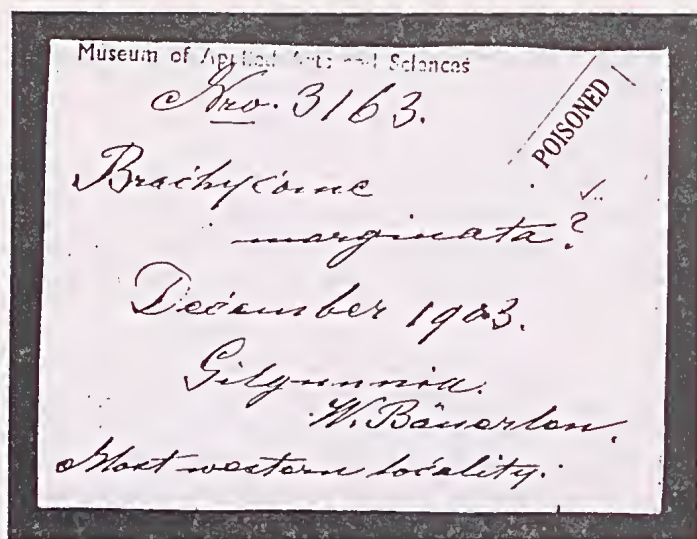 Museum of Applied Arts and Sciences
Nro. 3163.
POISONED
Brachycome
marginata?
December 1903.
Gilgunnia.
W. Bäuerlen.
Most western locality.